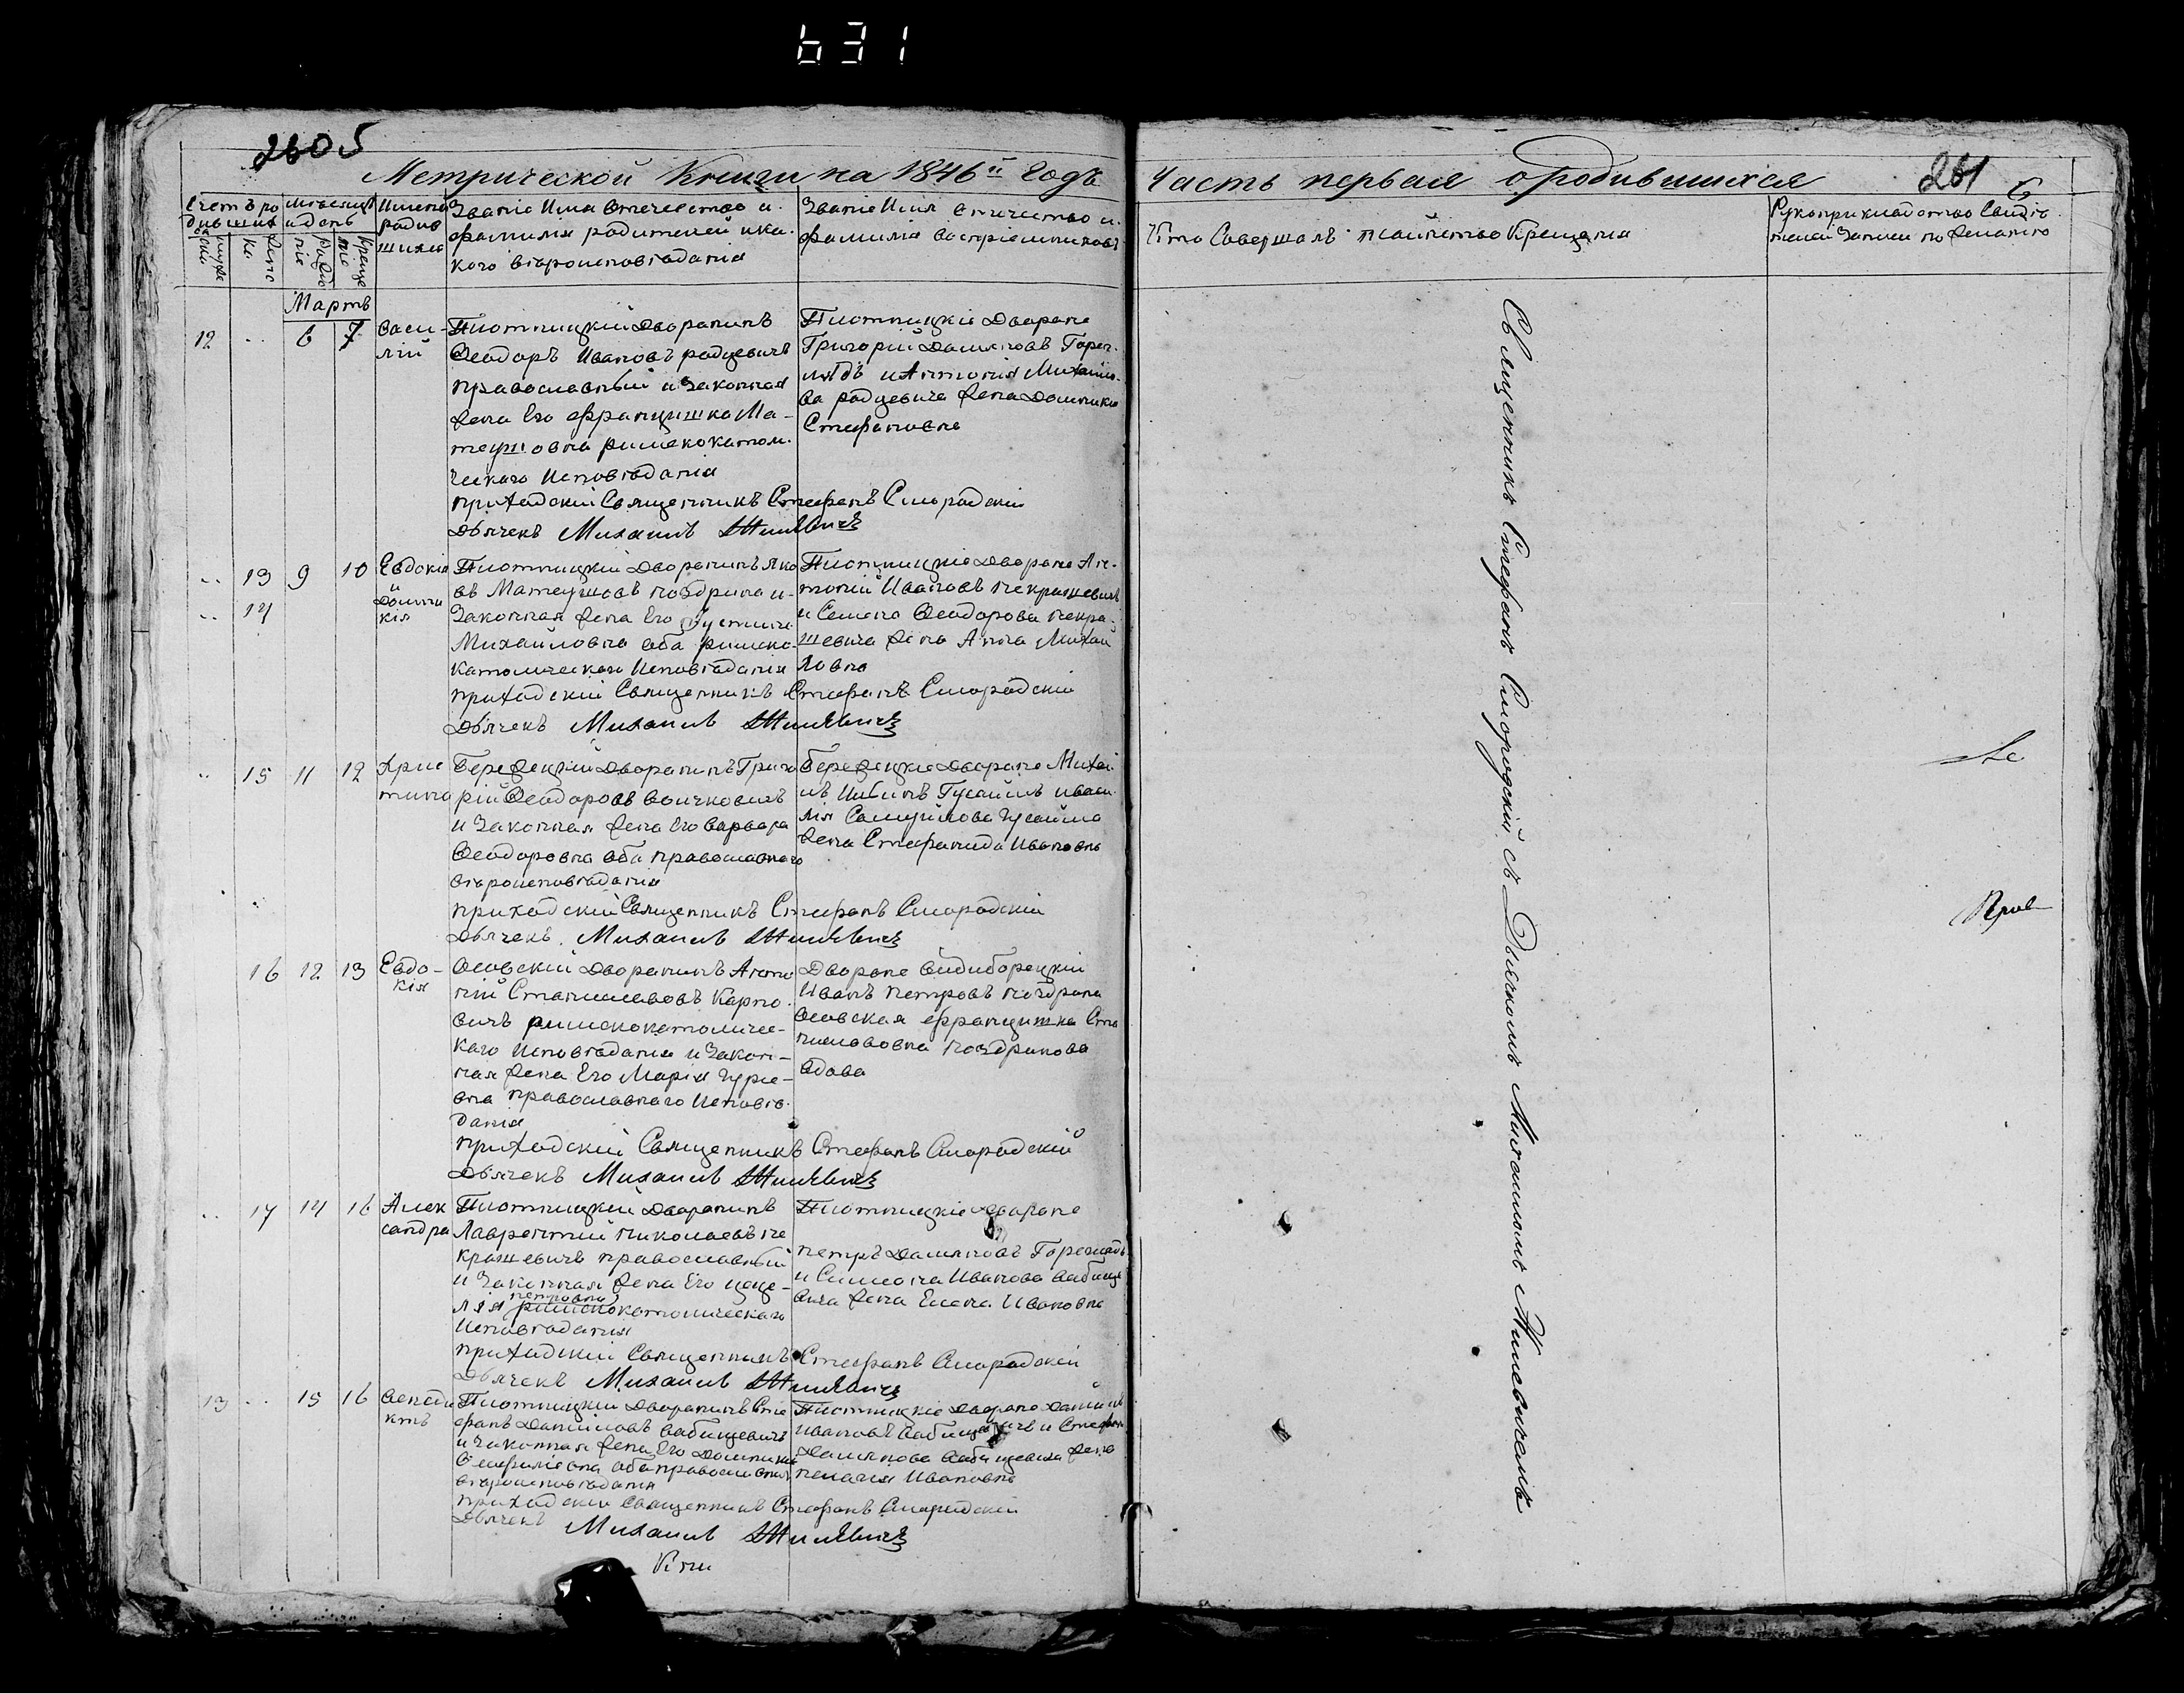 631
2605
Метрической Книги на 1846й Годъ
Часть первая о родившихся
261
6
Счетъ ро
дившихся
мужеска
женска
Месяцъ
и день
рожденія
крещенія
Имена
родив
шихся
Званіе Имя Отечество и
фамилія родителей и ка-
кого вѣроисповѣданія
Званіе Имя Отечество и
фамилія воспріемниковъ
Кто Совершалъ таинство Крещенія
Рукоприкладство Свидѣ
телей Записи по желанію
Мартъ
12
6
7
Васи-
лій
Плотницкій Дворянинъ
Ѳеодоръ Ивановъ родцевичъ
православный и Законная
жена Его Францишка Ма-
теушовна римскокатоли-
ческаго Исповѣданія
Плотницкіе Дворяне
Григорій Демяновъ Горег-
лядъ и Антонія Михайло-
ва родцевича жена Домникія
Стефановна
приходскій Священникъ Стефанъ Смородскій
Дьячекъ Михаилъ Жилевичъ
13
9
10
14
Евдокія
и
Домни
кія
Плотницкій Дворянинъ Яко
въ Матеушовъ ноздрина и
Законная жена Его Іустина
Михайловна оба римско-
католическаго Исповѣданія
Плотницкіе Дворяне Ан-
тоній Ивановъ некрашевичъ
и Семена Ѳеодорова некра-
шевича жена Анна Михай
ловна
приходскій Священникъ Стефанъ Смородскій
Дьячекъ Михаилъ Жилевичъ
15
11
12
Хрис
тина
Бережецкій Дворянинъ Григо
рій Ѳеодоровъ Воичковичъ
и Законная жена Его Варвара
Ѳеодоровна оба православнаго
вѣроисповѣданія
Бережецкіе Дворяне Михаи
лъ Гусаимъ и Васи-
лія Самуйлова Гусаима
жена Стефанида Ивановна
приходскій Священникъ Стефанъ Смородскій
Дьячекъ Михаилъ Жилевичъ
16
12
13
Евдо-
кія
Осовскій Дворянинъ Анто
ній Станиславовъ Карпо-
вичъ римскокатоличес-
каго Исповѣданія и Закон-
ная жена Его Марія Гурее-
вна православнаго Исповѣ-
данія
Дворяне Видиборецкій
Иванъ Петровъ Ноздрина
Осовская Францишка Ста
ниславовна Ноздринова
вдова
приходскій Священникъ Стефанъ Смородскій
Дьячекъ Михаилъ Жилевичъ
17
14
16
Алек
сандра
Плотницкій Дворянинъ
Лаврентій Николаевъ не
крашевичъ православный
и Законная жена Его Цеце-
лія петровна римскокатолическаго
Исповѣданія
Плотницкіе Дворяне
Петръ Демяновъ Гореглядъ
и Симеона Иванова Бабище
вича жена Елена Ивановна
приходскій Священникъ Стефанъ Смородскій
Дьячекъ Михаилъ Жилевичъ
13
15
16
Венеди
ктъ
Плотницкій Дворянинъ Сте
фанъ Даниловъ Бабищевичъ
и Законная жена Его Домникія
оба православнаго
вѣроисповѣданія
Плотницкіе Дворяне Данилъ
Ивановъ Бабищевичъ и Стефана
Демянова Бабищевича жена
Пелагія Ивановна
приходскій Священникъ Стефанъ Смородскій
Дьячекъ Михаилъ Жилевичъ
Кни
Священникъ Стефанъ Смородскій съ Дьячкомъ Михаиломъ Жилевичемъ